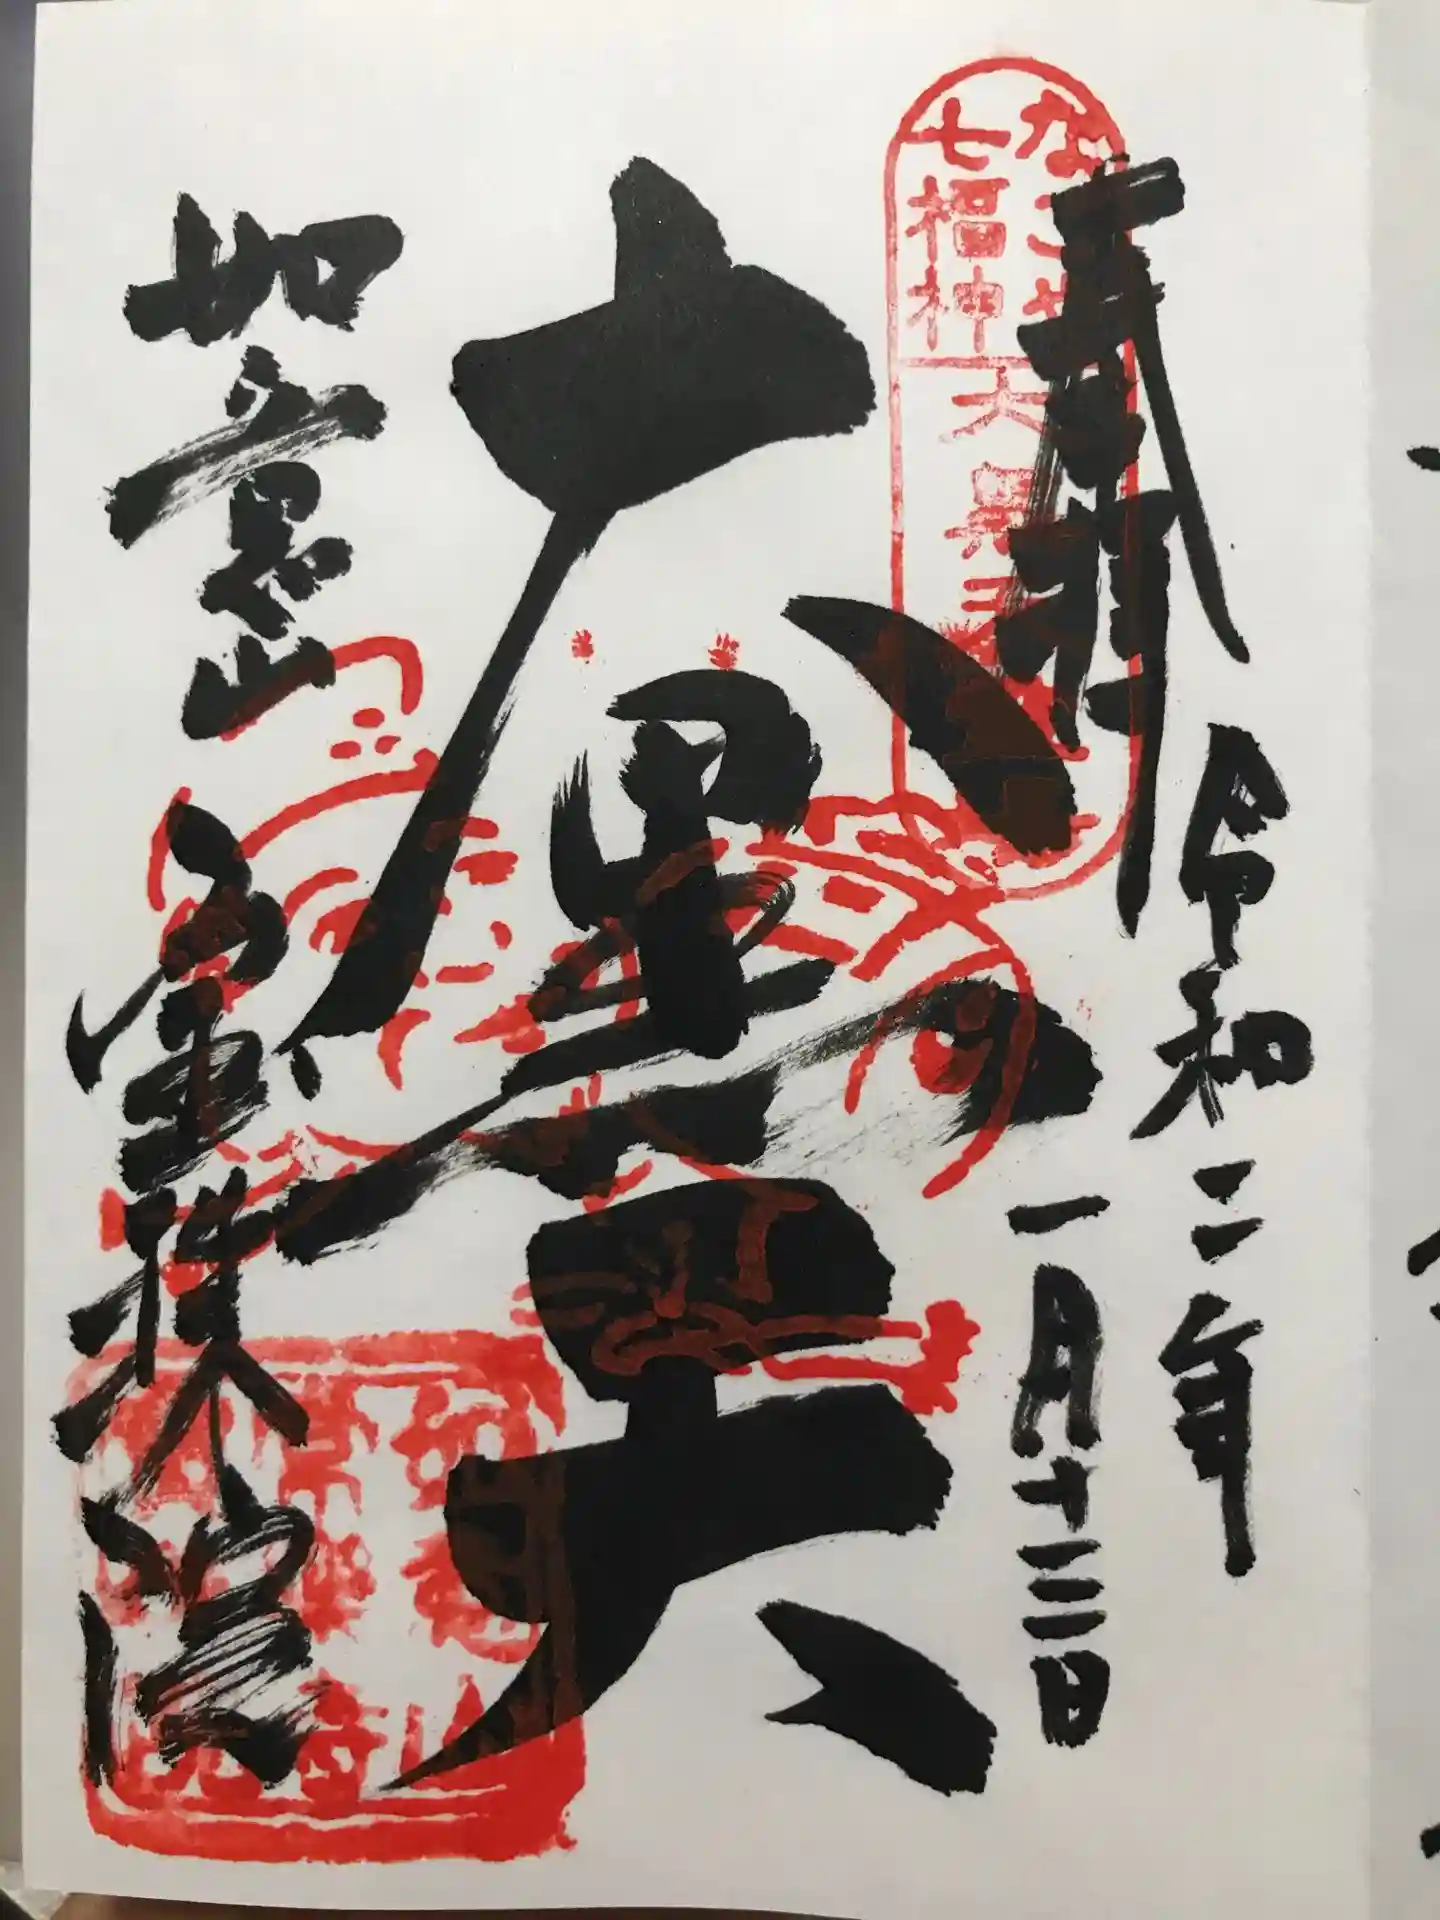 奉拝
なごや
七福神
大黒天
令和二年
一月十三日
大黒天
如意山
宝珠院